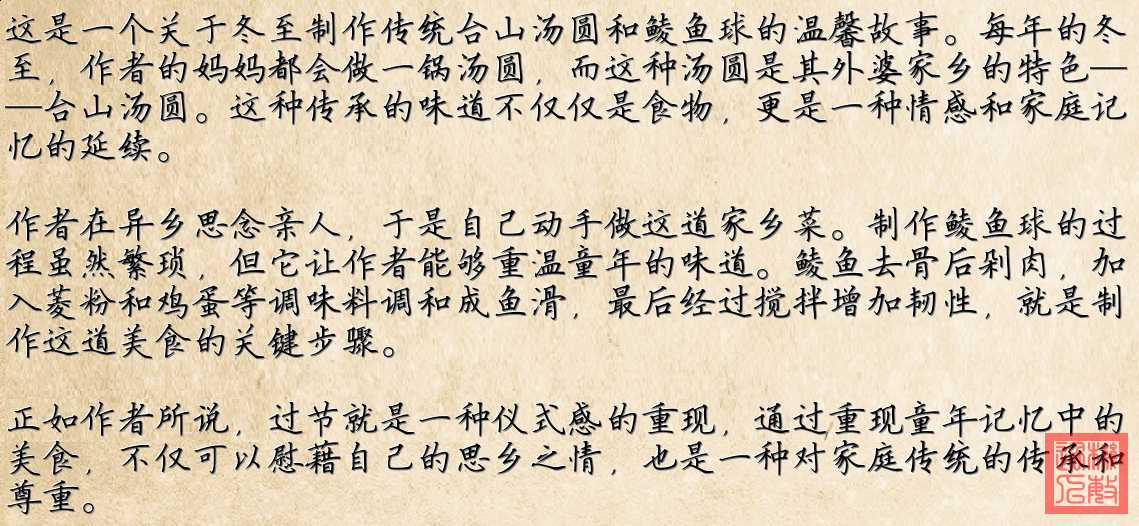 这是一个关于冬至制作传统台山汤圆和鲮鱼球的温馨故事。每年的冬
至，作者的妈妈都会做一锅汤圆，而这种汤圆是其外婆家乡的特色—
—台山汤圆。这种传承的味道不仅仅是食物，更是一种情感和家庭记
忆的延续。
作者在异乡思念亲人，于是自己动手做这道家乡菜。制作鲮鱼球的过
程虽然繁琐，但它让作者能够重温童年的味道。鲮鱼去骨后剁肉，加
入菱粉和鸡蛋等调味料调和成鱼滑，最后经过搅拌增加韧性，就是制
作这道美食的关键步骤。
正如作者所说，过节就是一种仪式感的重现，通过重现童年记忆中的
美食，不仅可以慰藉自己的思乡之情，也是一种对家庭传统的传承和
尊重。